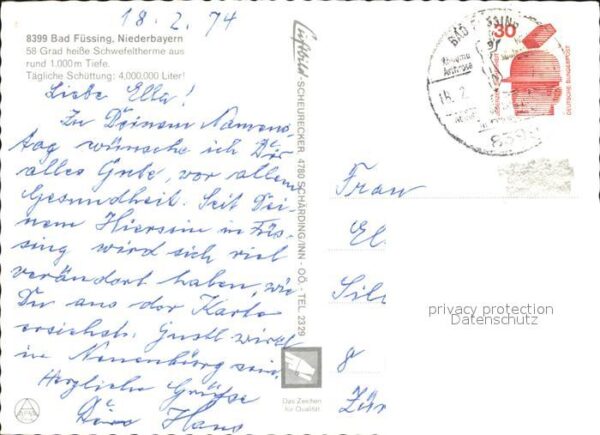 18.2.74
8399 Bad Füssing, Niederbayern
58 Grad heiße Schwefeltherme aus
rund 1.000 m Tiefe.
Tägliche Schüttung: 4,000.000 Liter!
Liebe Ella!
Zu Deinem Namens
tag wünsche ich Dir
alles Gute, vor allem
Gesundheit. Seit Dei-
nem Hiersein in Füs-
sing wird sich viel
verändert haben, wie
Du aus der Karte
ersiehst. Gustl wirkt
in Neuenbürg
Herzliche Grüße
Hans
Luftbild-SCHEURECKER 4780 SCHÄRDING/INN - OÖ. - TEL 2329
Das Zeichen
für Qualität
BAD FÜSSING
8399
30
DEUTSCHE BUNDESPOST
Frau
El
Sil
8
Zür
privacy protection
Datenschutz